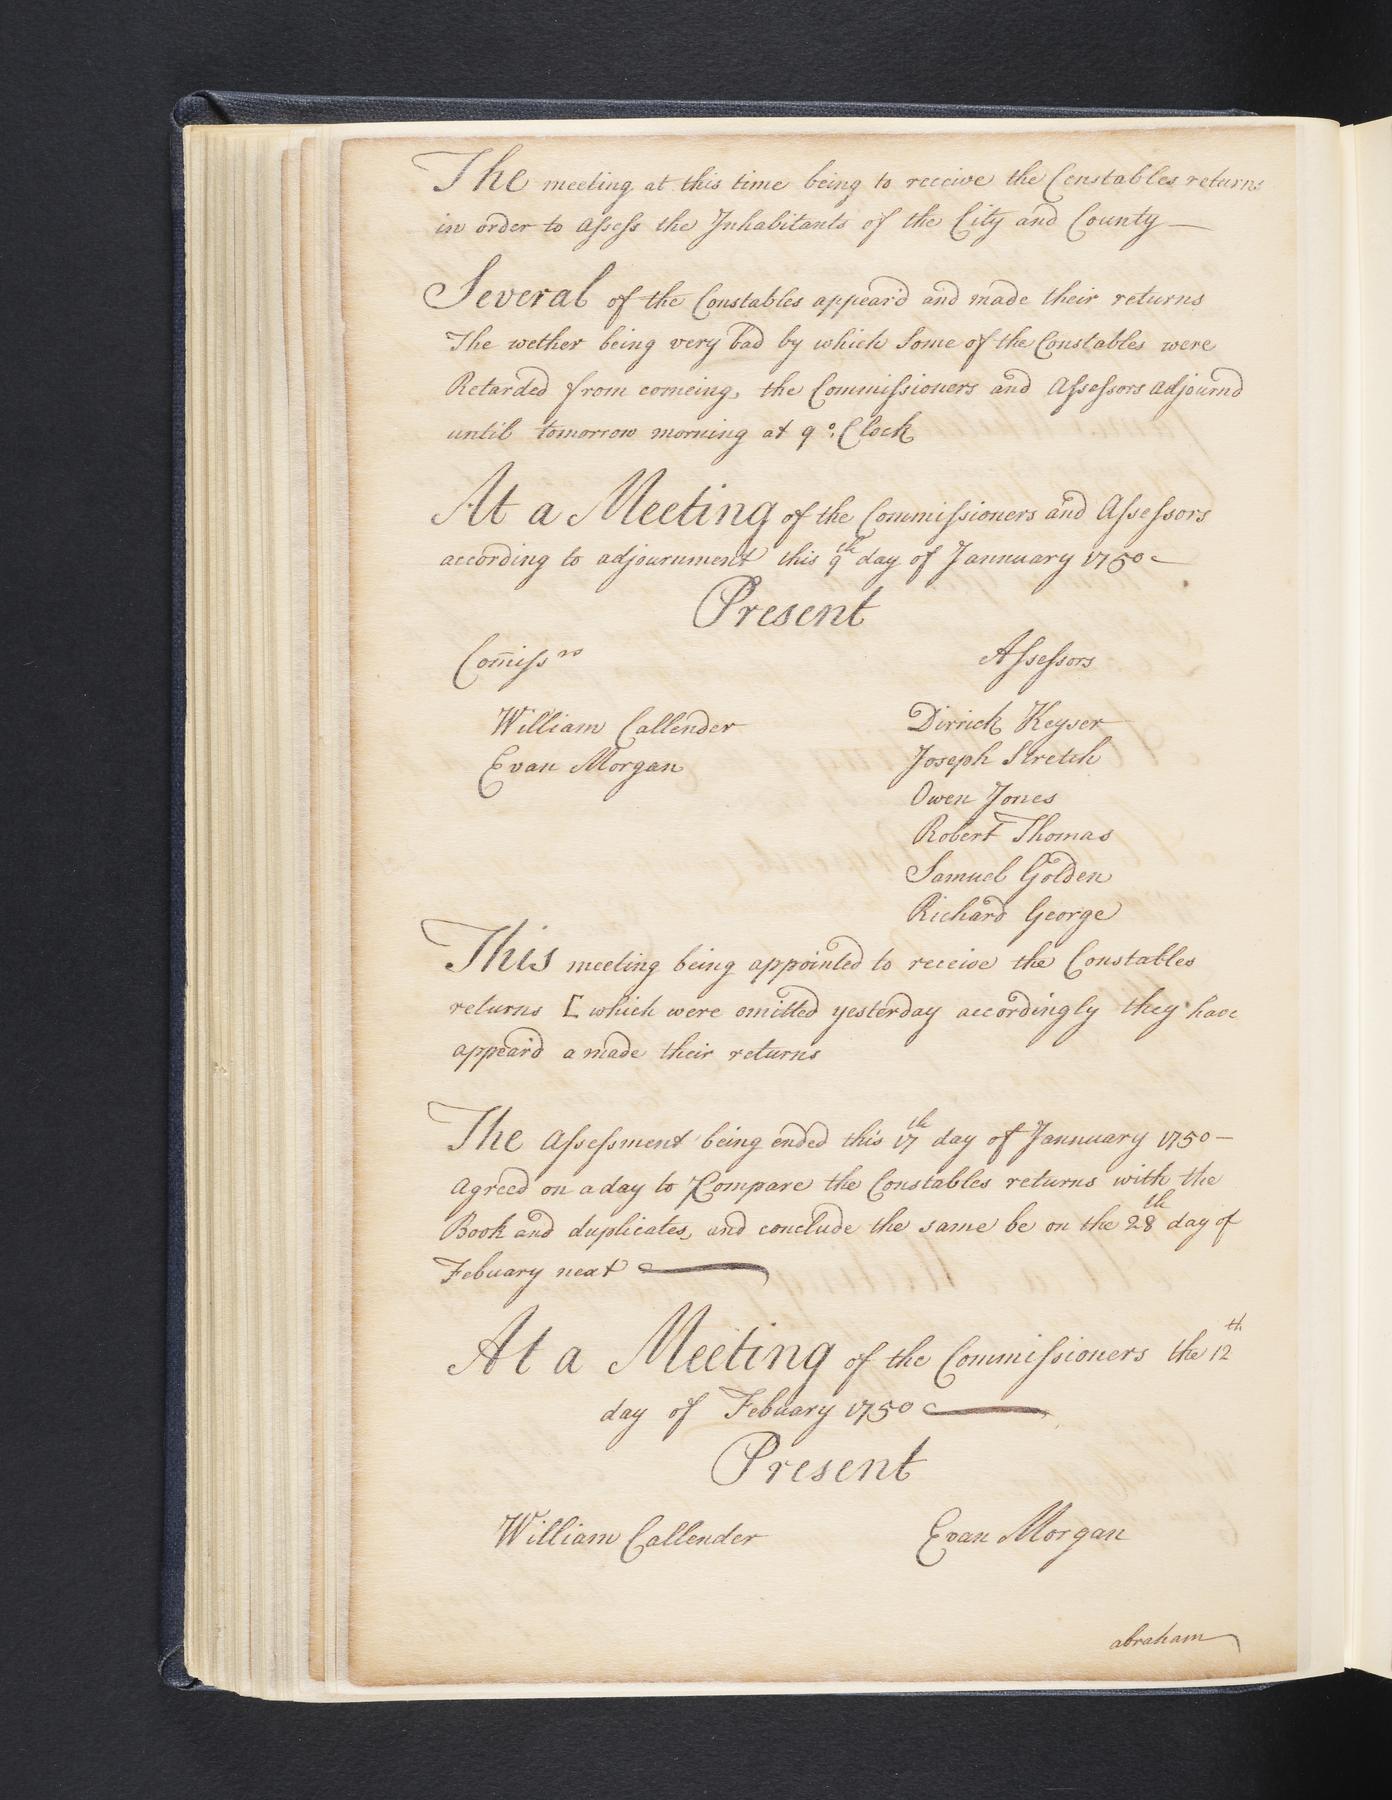 The meeting at this time being to receive the Constables returns
in order to assess the Inhabitants of the City and County —
Several of the Constables appear'd and made their returns
The wether being very bad by which Some of the Constables were
Retarded from comeing, the Commissioners and Assessors adjournd
until tomorrow morning at 9 o. Clock
At a Meeting of the Commissioners and Assessors
according to adjournment this 9th day of Jannuary 1750
Present
Comissrs
Assessors
William Callender
Dirrick Keyser
Evan Morgan
Joseph Stretch
Owen Jones
Robert Thomas
Samuel Golden
Richard George
This meeting being appointed to receive the Constables
returns [ which were omitted yesterday accordingly they have
appear'd a made their returns
The Assessment being ended this 17th day of Jannuary 1750 —
agreed on a day to Compare the Constables returns with the
Book and duplicates, and conclude the same be on the 28th day of
Febuary next
At a Meeting of the Commissioners the 12th
day of Febuary 1750
Present
William Callender
Evan Morgan
abraham